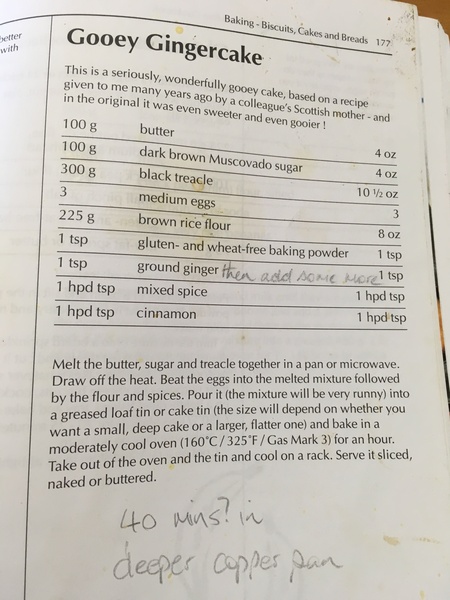 better
with
Baking - Biscuits, Cakes and Breads 177
Gooey Gingercake
This is a seriously, wonderfully gooey cake, based on a recipe
given to me many years ago by a colleague's Scottish mother - and
in the original it was even sweeter and even gooier !
100 g butter 4 oz
100 g dark brown Muscovado sugar 4 oz
300 g black treacle 10 ½ oz
3 medium eggs 3
225 g brown rice flour 8 oz
1 tsp gluten- and wheat-free baking powder 1 tsp
1 tsp ground ginger then add some more 1 tsp
1 hpd tsp mixed spice 1 hpd tsp
1 hpd tsp cinnamon 1 hpd tsp
Melt the butter, sugar and treacle together in a pan or microwave.
Draw off the heat. Beat the eggs into the melted mixture followed
by the flour and spices. Pour it (the mixture will be very runny) into
a greased loaf tin or cake tin (the size will depend on whether you
want a small, deep cake or a larger, flatter one) and bake in a
moderately cool oven (160°C / 325°F / Gas Mark 3) for an hour.
Take out of the oven and the tin and cool on a rack. Serve it sliced,
naked or buttered.
40 mins? in
deeper copper pan